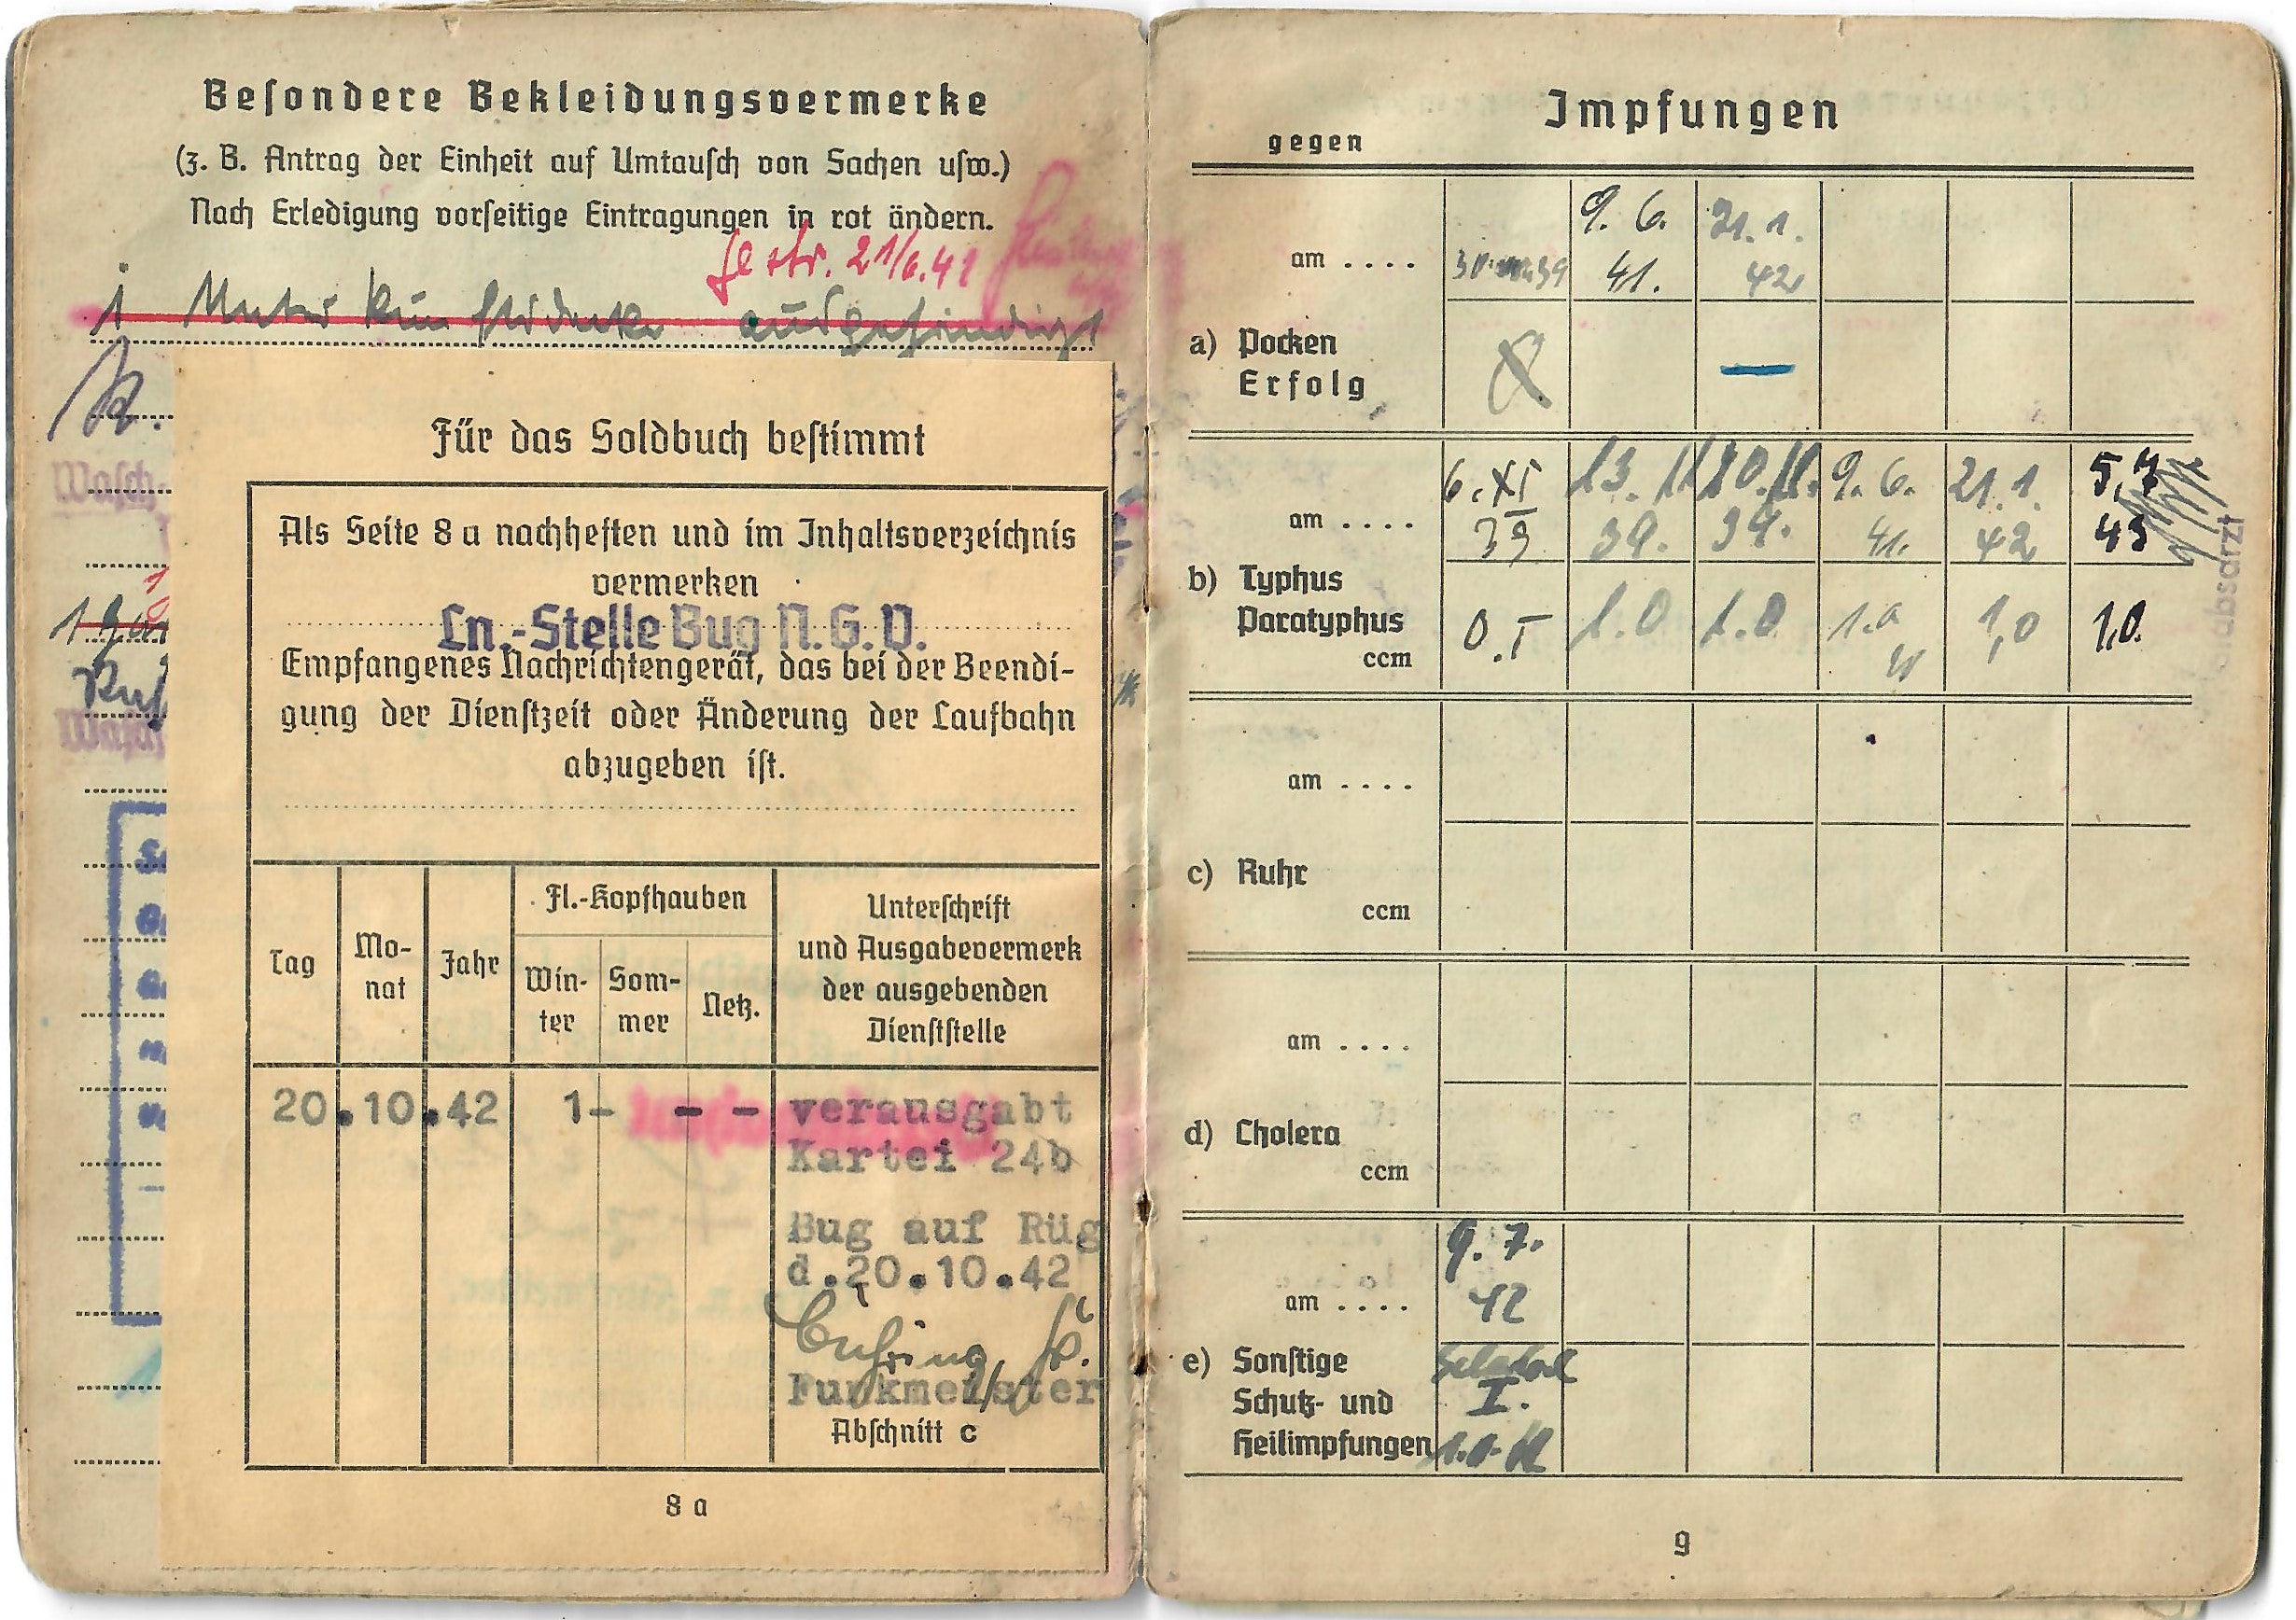 Besondere Bekleidungsvermerke
(z. B. Antrag der Einheit auf Umtausch von Sachen usw.)
Nach Erledigung vorseitige Eintragungen in rot ändern.
gestr. 21/6.41
1 ausgehändigt
Wasch-
Für das Soldbuch bestimmt
Als Seite 8 a nachheften und im Inhaltsverzeichnis
vermerken
Ln.-Stelle Bug N.G.V.
Empfangenes Nachrichtengerät, das bei der Beendi-
gung der Dienstzeit oder Änderung der Laufbahn
abzugeben ist.
Tag Mo-nat Jahr Fl.-Kopfhauben Unterschrift
und Ausgabevermerk
der ausgebenden
Dienststelle
Win-ter Som-mer Netz.
20.10.42 1- - - verausgabt
Kartei 24b
Bug auf Rüg
d.20.10.42
Funkmeister
Abschnitt c
8 a
Impfungen
gegen
am .... 9. 6. 41. 21. 1. 42
a) Pocken
Erfolg —
am .... 6. XI 39 13. 11. 39. 20. 11. 39. 9. 6. 41. 21. 1. 42 5. 7 43
b) Typhus
Paratyphus
ccm 0.5 1.0 1.0 1.0 1,0 1,0.
am ....
c) Ruhr
ccm
am ....
d) Cholera
ccm
am .... 9. 7. 42
e) Sonstige
Schutz- und I.
Heilimpfungen
9